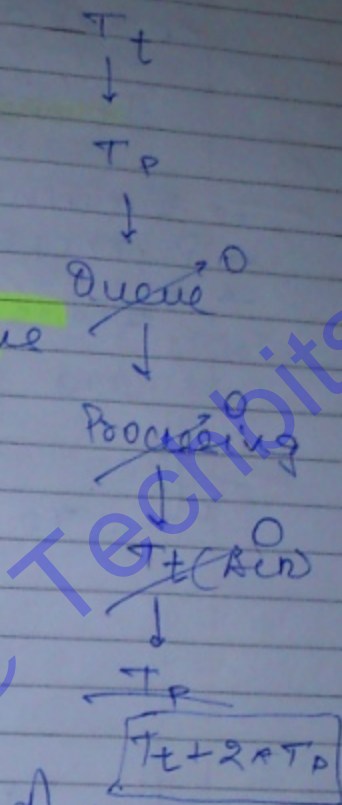 Tt
↓
Tp
↓
Queue → 0
ue
↓
Processing → 0
↓
Tt(Ack) 0
↓
Tp
Tt + 2 * Tp
Techbits